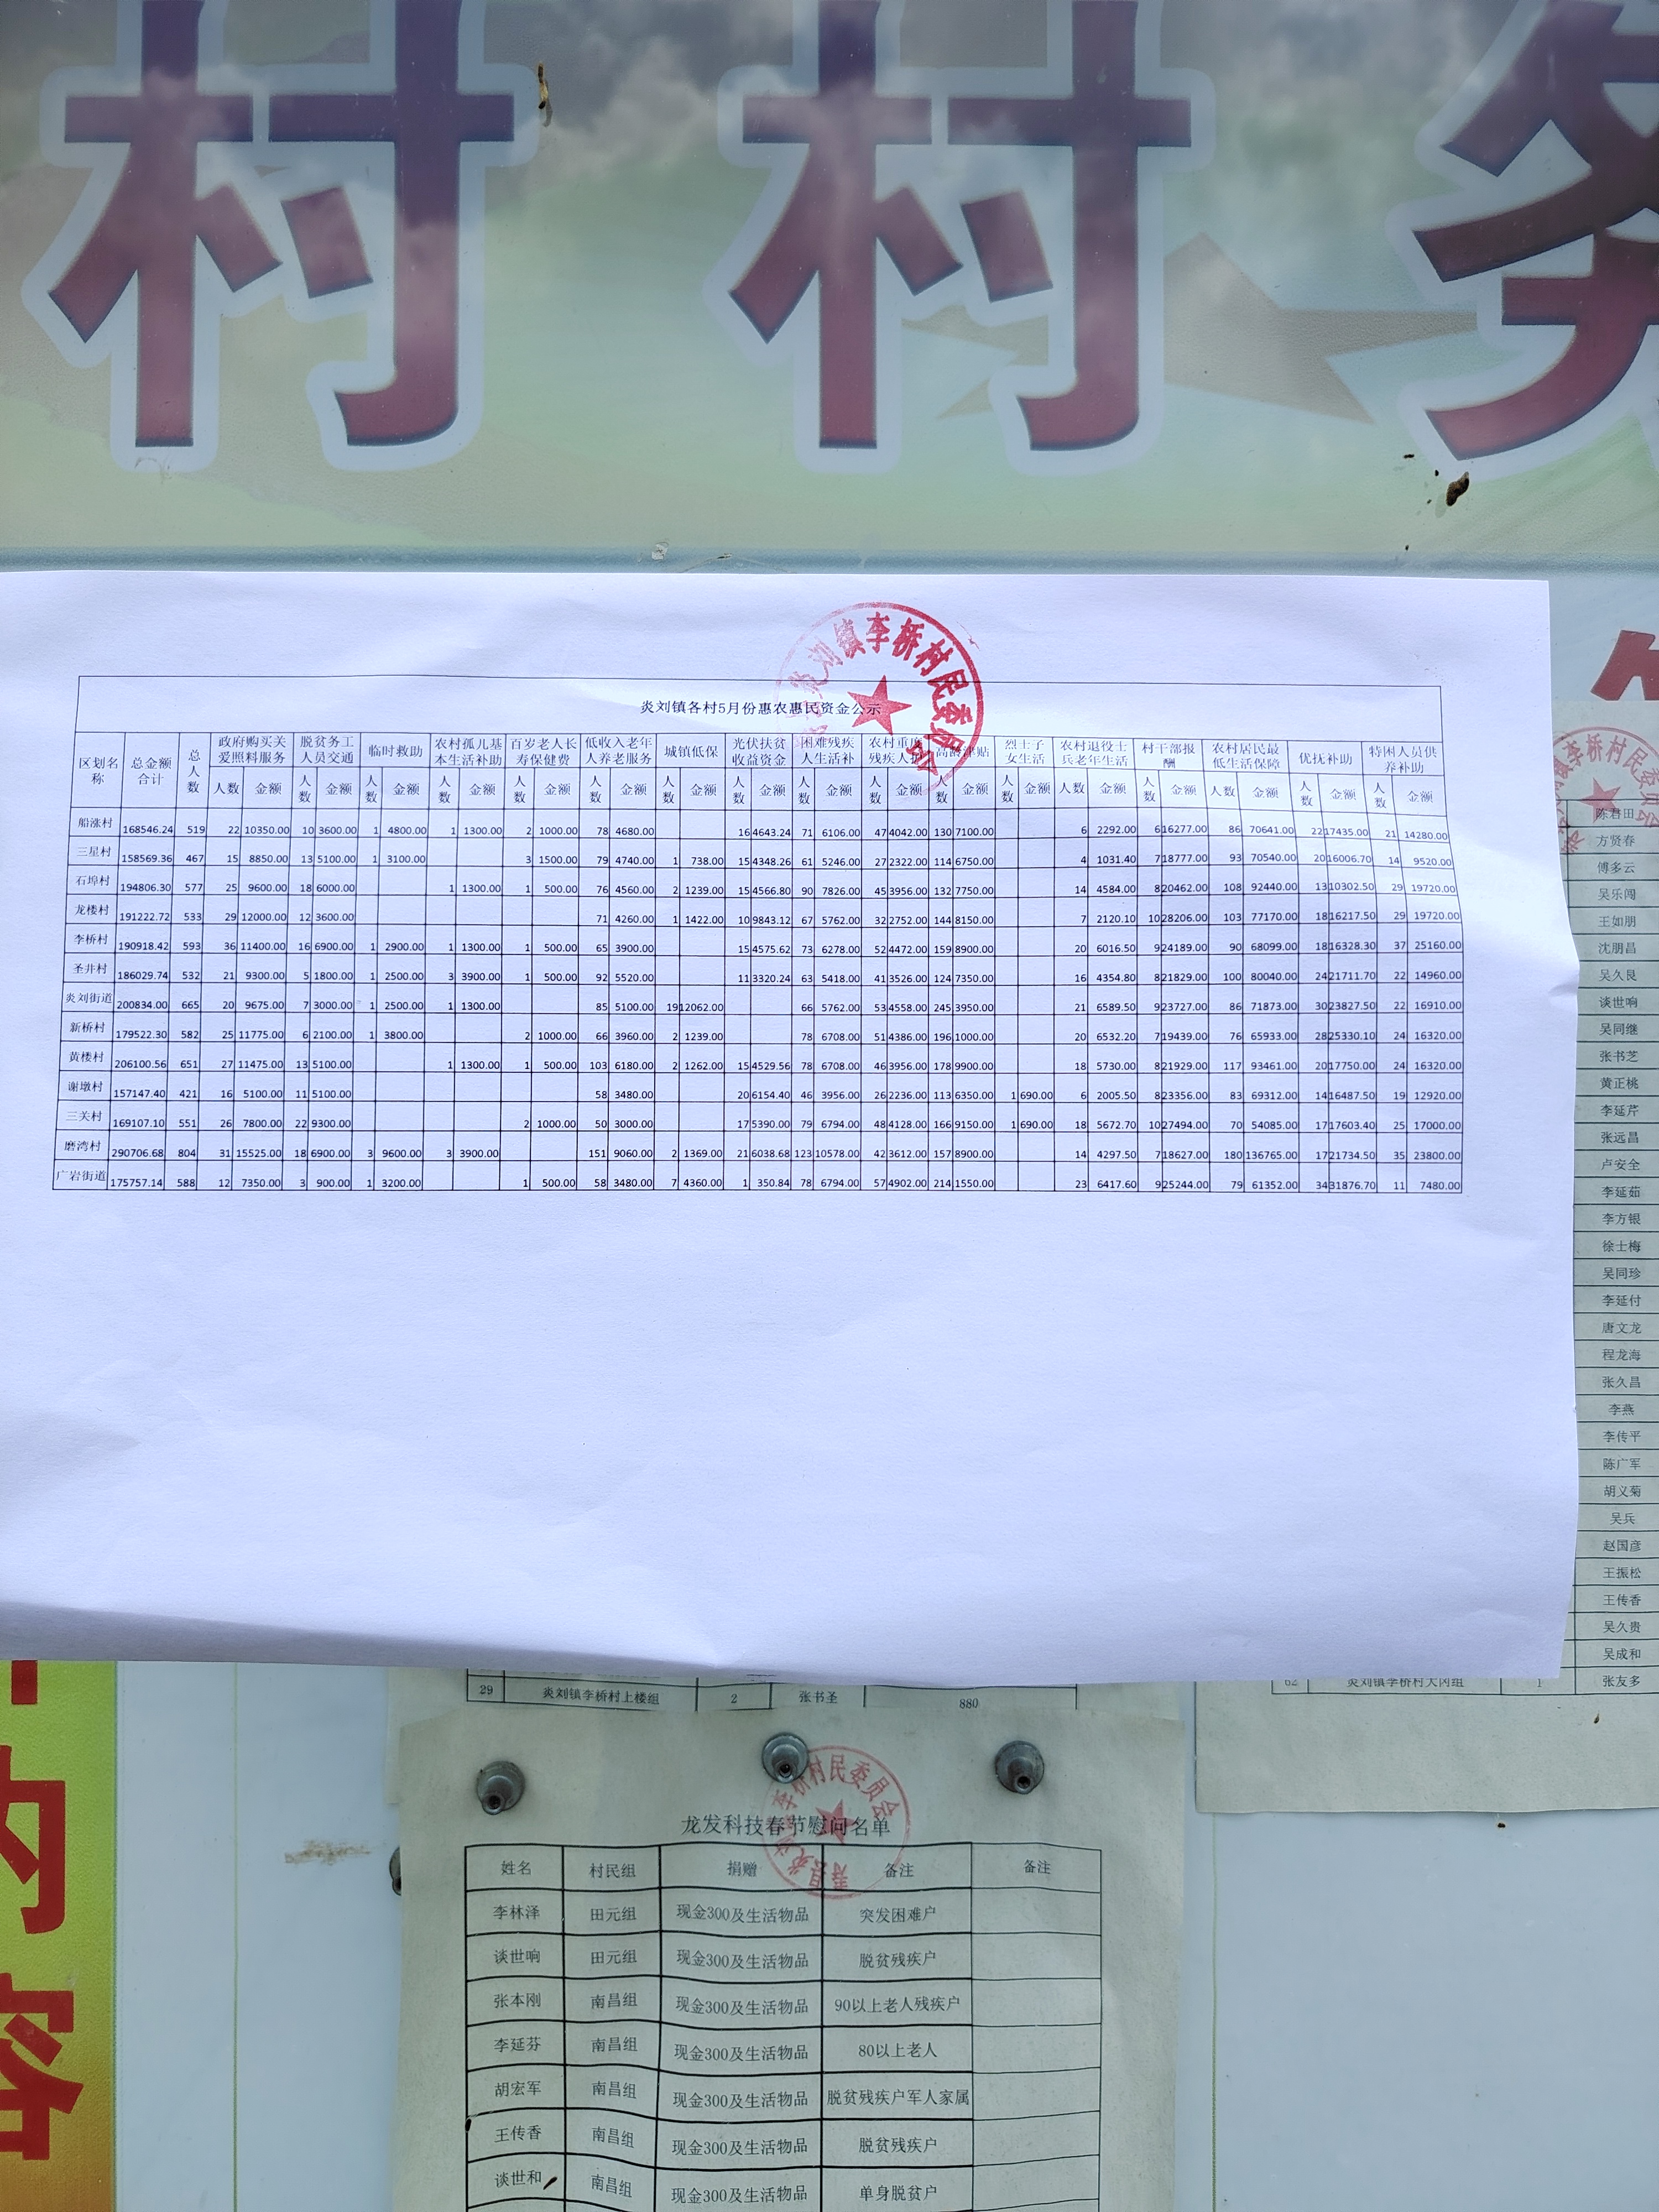 村 村 务
炎刘镇李桥村民委员会
炎刘镇各村5月份惠农惠民资金公示
区划名称 总金额合计 总人数 政府购买关爱照料服务 脱贫务工人员交通 临时救助 农村孤儿基本生活补助 百岁老人长寿保健费 低收入老年人养老服务 城镇低保 光伏扶贫收益资金 困难残疾人生活补 农村重度残疾人护 高龄津贴 烈士子女生活 农村退役士兵老年生活 村干部报酬 农村居民最低生活保障 优抚补助 特困人员供养补助
人数 金额 人数 金额 人数 金额 人数 金额 人数 金额 人数 金额 人数 金额 人数 金额 人数 金额 人数 金额 人数 金额 人数 金额 人数 金额 人数 金额 人数 金额 人数 金额 人数 金额
船涨村 168546.24 519 22 10350.00 10 3600.00 1 4800.00 1 1300.00 2 1000.00 78 4680.00 16 4643.24 71 6106.00 47 4042.00 130 7100.00 6 2292.00 6 16277.00 86 70641.00 22 17435.00 21 14280.00
三星村 158569.36 467 15 8850.00 13 5100.00 1 3100.00 3 1500.00 79 4740.00 1 738.00 15 4348.26 61 5246.00 27 2322.00 114 6750.00 4 1031.40 7 18777.00 93 70540.00 20 16006.70 14 9520.00
石埠村 194806.30 577 25 9600.00 18 6000.00 1 1300.00 1 500.00 76 4560.00 2 1239.00 15 4566.80 90 7826.00 45 3956.00 132 7750.00 14 4584.00 8 20462.00 108 92440.00 13 10302.50 29 19720.00
龙楼村 191222.72 533 29 12000.00 12 3600.00 71 4260.00 1 1422.00 10 9843.12 67 5762.00 32 2752.00 144 8150.00 7 2120.10 10 28206.00 103 77170.00 18 16217.50 29 19720.00
李桥村 190918.42 593 36 11400.00 16 6900.00 1 2900.00 1 1300.00 1 500.00 65 3900.00 15 4575.62 73 6278.00 52 4472.00 159 8900.00 20 6016.50 9 24189.00 90 68099.00 18 16328.30 37 25160.00
圣井村 186029.74 532 21 9300.00 5 1800.00 1 2500.00 3 3900.00 1 500.00 92 5520.00 11 3320.24 63 5418.00 41 3526.00 124 7350.00 16 4354.80 8 21829.00 100 80040.00 24 21711.70 22 14960.00
炎刘街道 200834.00 665 20 9675.00 7 3000.00 1 2500.00 1 1300.00 85 5100.00 19 12062.00 66 5762.00 53 4558.00 245 3950.00 21 6589.50 9 23727.00 86 71873.00 30 23827.50 22 16910.00
新桥村 179522.30 582 25 11775.00 6 2100.00 1 3800.00 2 1000.00 66 3960.00 2 1239.00 78 6708.00 51 4386.00 196 1000.00 20 6532.20 7 19439.00 76 65933.00 28 25330.10 24 16320.00
黄楼村 206100.56 651 27 11475.00 13 5100.00 1 1300.00 1 500.00 103 6180.00 2 1262.00 15 4529.56 78 6708.00 46 3956.00 178 9900.00 18 5730.00 8 21929.00 117 93461.00 20 17750.00 24 16320.00
谢墩村 157147.40 421 16 5100.00 11 5100.00 58 3480.00 20 6154.40 46 3956.00 26 2236.00 113 6350.00 1 690.00 6 2005.50 8 23356.00 83 69312.00 14 16487.50 19 12920.00
三关村 169107.10 551 26 7800.00 22 9300.00 2 1000.00 50 3000.00 17 5390.00 79 6794.00 48 4128.00 166 9150.00 1 690.00 18 5672.70 10 27494.00 70 54085.00 17 17603.40 25 17000.00
磨湾村 290706.68 804 31 15525.00 18 6900.00 3 9600.00 3 3900.00 151 9060.00 2 1369.00 21 6038.68 123 10578.00 42 3612.00 157 8900.00 14 4297.50 7 18627.00 180 136765.00 17 21734.50 35 23800.00
广岩街道 175757.14 588 12 7350.00 3 900.00 1 3200.00 1 500.00 58 3480.00 7 4360.00 1 350.84 78 6794.00 57 4902.00 214 1550.00 23 6417.60 9 25244.00 79 61352.00 34 31876.70 11 7480.00
李桥村民委员会
陈君田
方贤春
傅多云
吴乐闯
王如朋
沈朋昌
吴久良
谈世响
吴同继
张书芝
黄正桃
李延芹
张远昌
卢安全
李延茹
李方银
徐士梅
吴同珍
李延付
唐文龙
程龙海
张久昌
李燕
李传平
陈广军
胡义菊
吴兵
赵国彦
王振松
王传香
吴久贵
吴成和
62 炎刘镇李桥村大冈组 1 张友多
29 炎刘镇李桥村上楼组 2 张书圣 880
李桥村民委员会
龙发科技春节慰问名单
姓名 村民组 捐赠 备注 备注
李林泽 田元组 现金300及生活物品 突发困难户
谈世响 田元组 现金300及生活物品 脱贫残疾户
张本刚 南昌组 现金300及生活物品 90以上老人残疾户
李延芬 南昌组 现金300及生活物品 80以上老人
胡宏军 南昌组 现金300及生活物品 脱贫残疾户军人家属
王传香 南昌组 现金300及生活物品 脱贫残疾户
谈世和 南昌组 现金300及生活物品 单身脱贫户
的